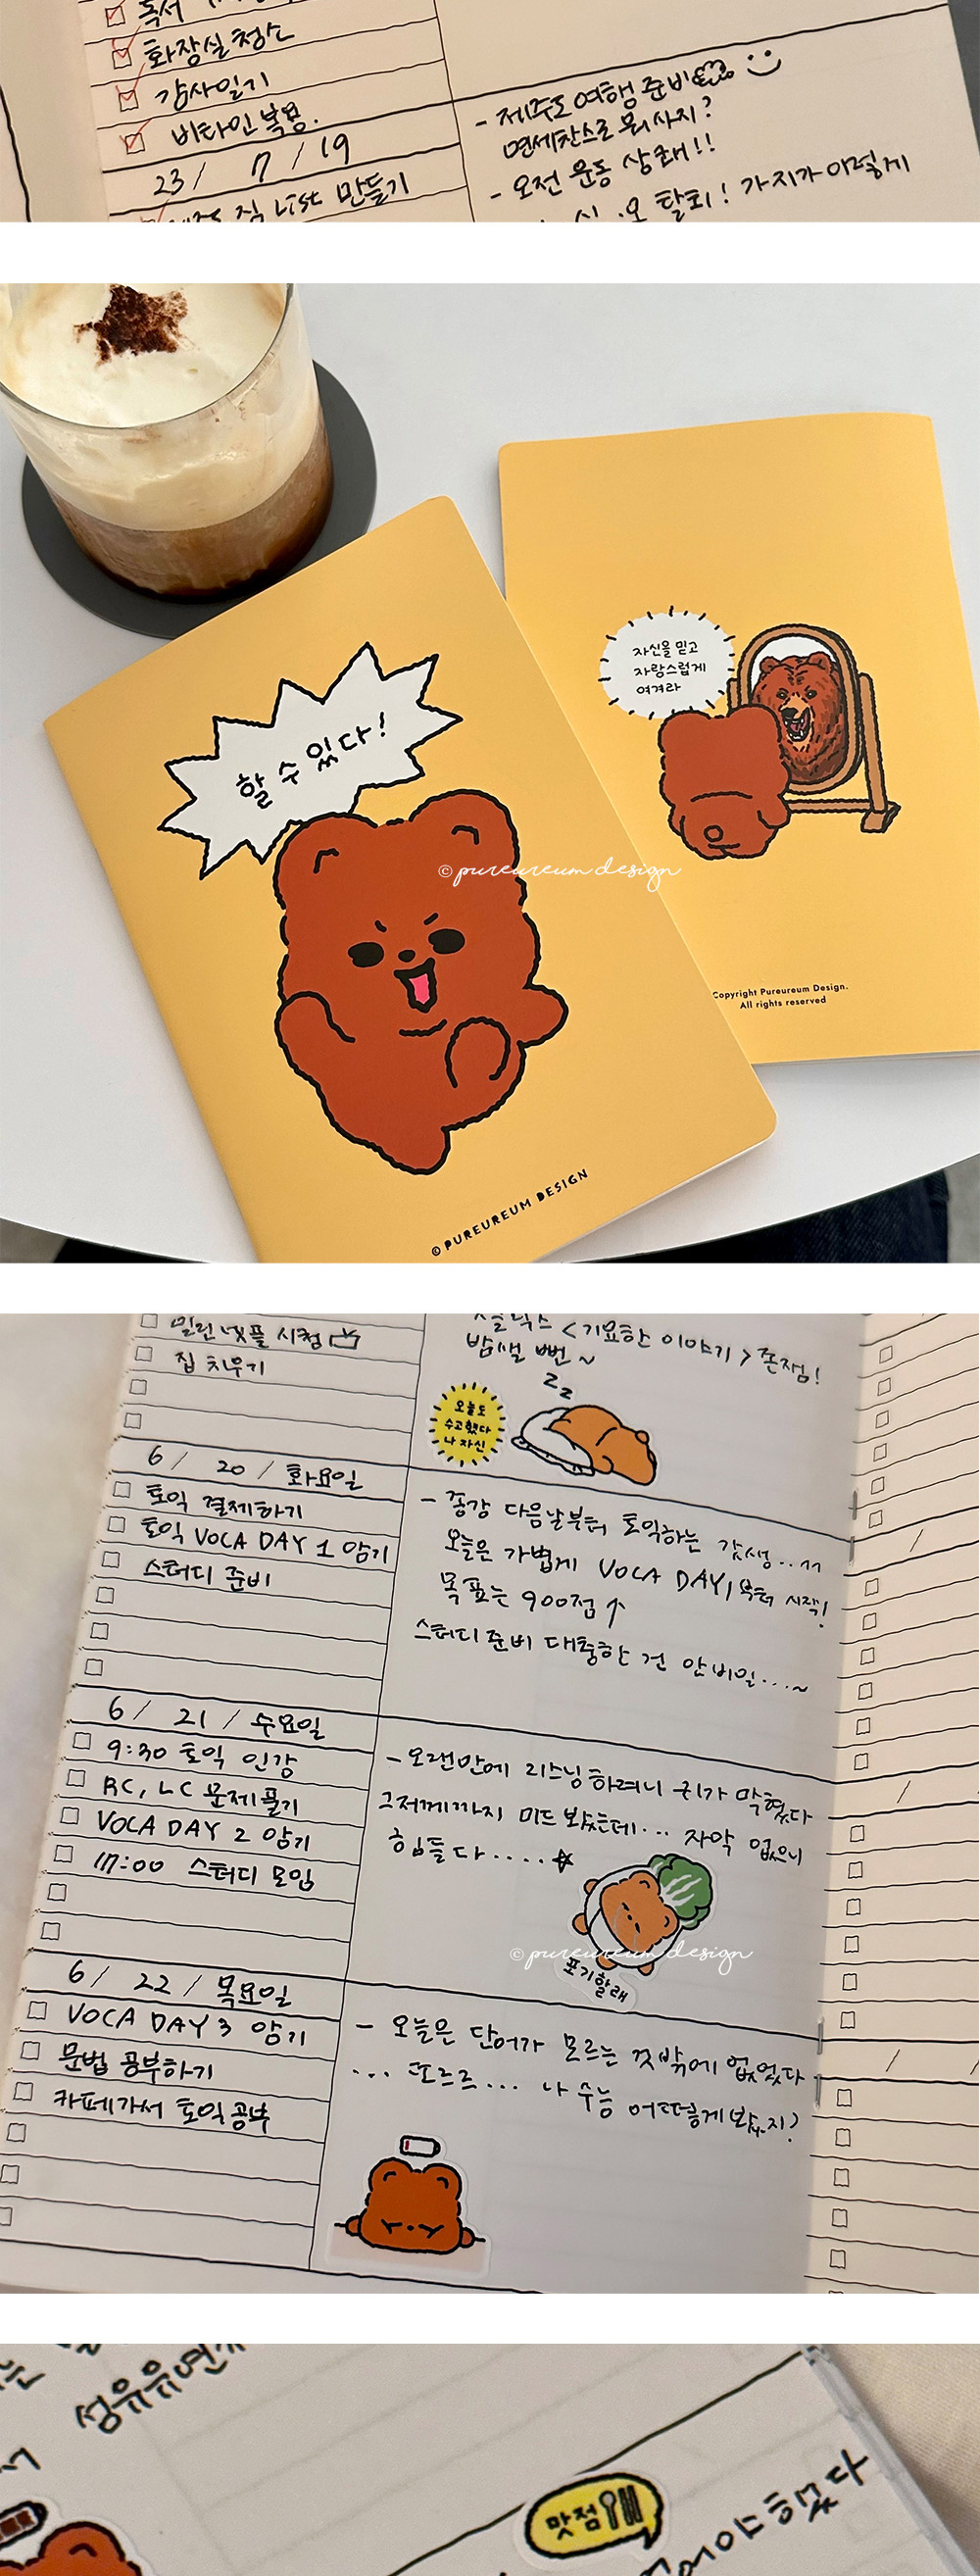 화장실 청소
감사일기
비타민 복용.
23 / 7 / 19
List 만들기
- 제주도 여행 준비
면세찬스로 뭐 사지?
- 오전 운동 상쾌!!
탈퇴! 가지가 이렇게
할 수 있다!
© PUREUREUM DESIGN
자신을 믿고
자랑스럽게
여겨라
Copyright Pureureum Design.
All rights reserved
© pureureum design
밀린 넷플 시청
집 치우기
<기묘한 이야기> 존잼!
밤샐 뻔~
zz
오늘도
수고했다
나 자신
6 / 20 / 화요일
토익 결제하기
토익 VOCA DAY 1 암기
스터디 준비
- 종강 다음날부터 토익하는 갓생..ㄲㄲ
오늘은 가볍게 VOCA DAY 1부터 시작!
목표는 900점↑
스터디 준비 대충한 건 안비밀...~
6 / 21 / 수요일
9:30 토익 인강
RC, LC 문제풀기
VOCA DAY 2 암기
17:00 스터디 모임
- 오랜만에 리스닝하려니 귀가 막혔다
그저께까지 미드 봤는데... 자막 없으니
힘들다....☆
포기할래
© pureureum design
6 / 22 / 목요일
VOCA DAY 3 암기
문법 공부하기
카페가서 토익공부
- 오늘은 단어가 모르는 것밖에 없었다.
... 또르르... 나 수능 어떻게 봤지?
섬유유연
맛점